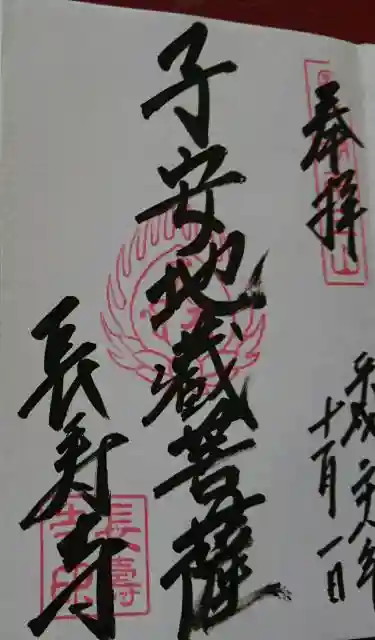 奉拝
平成二十八年
十一月一日
子安地蔵菩薩
長寿寺
長壽寺印